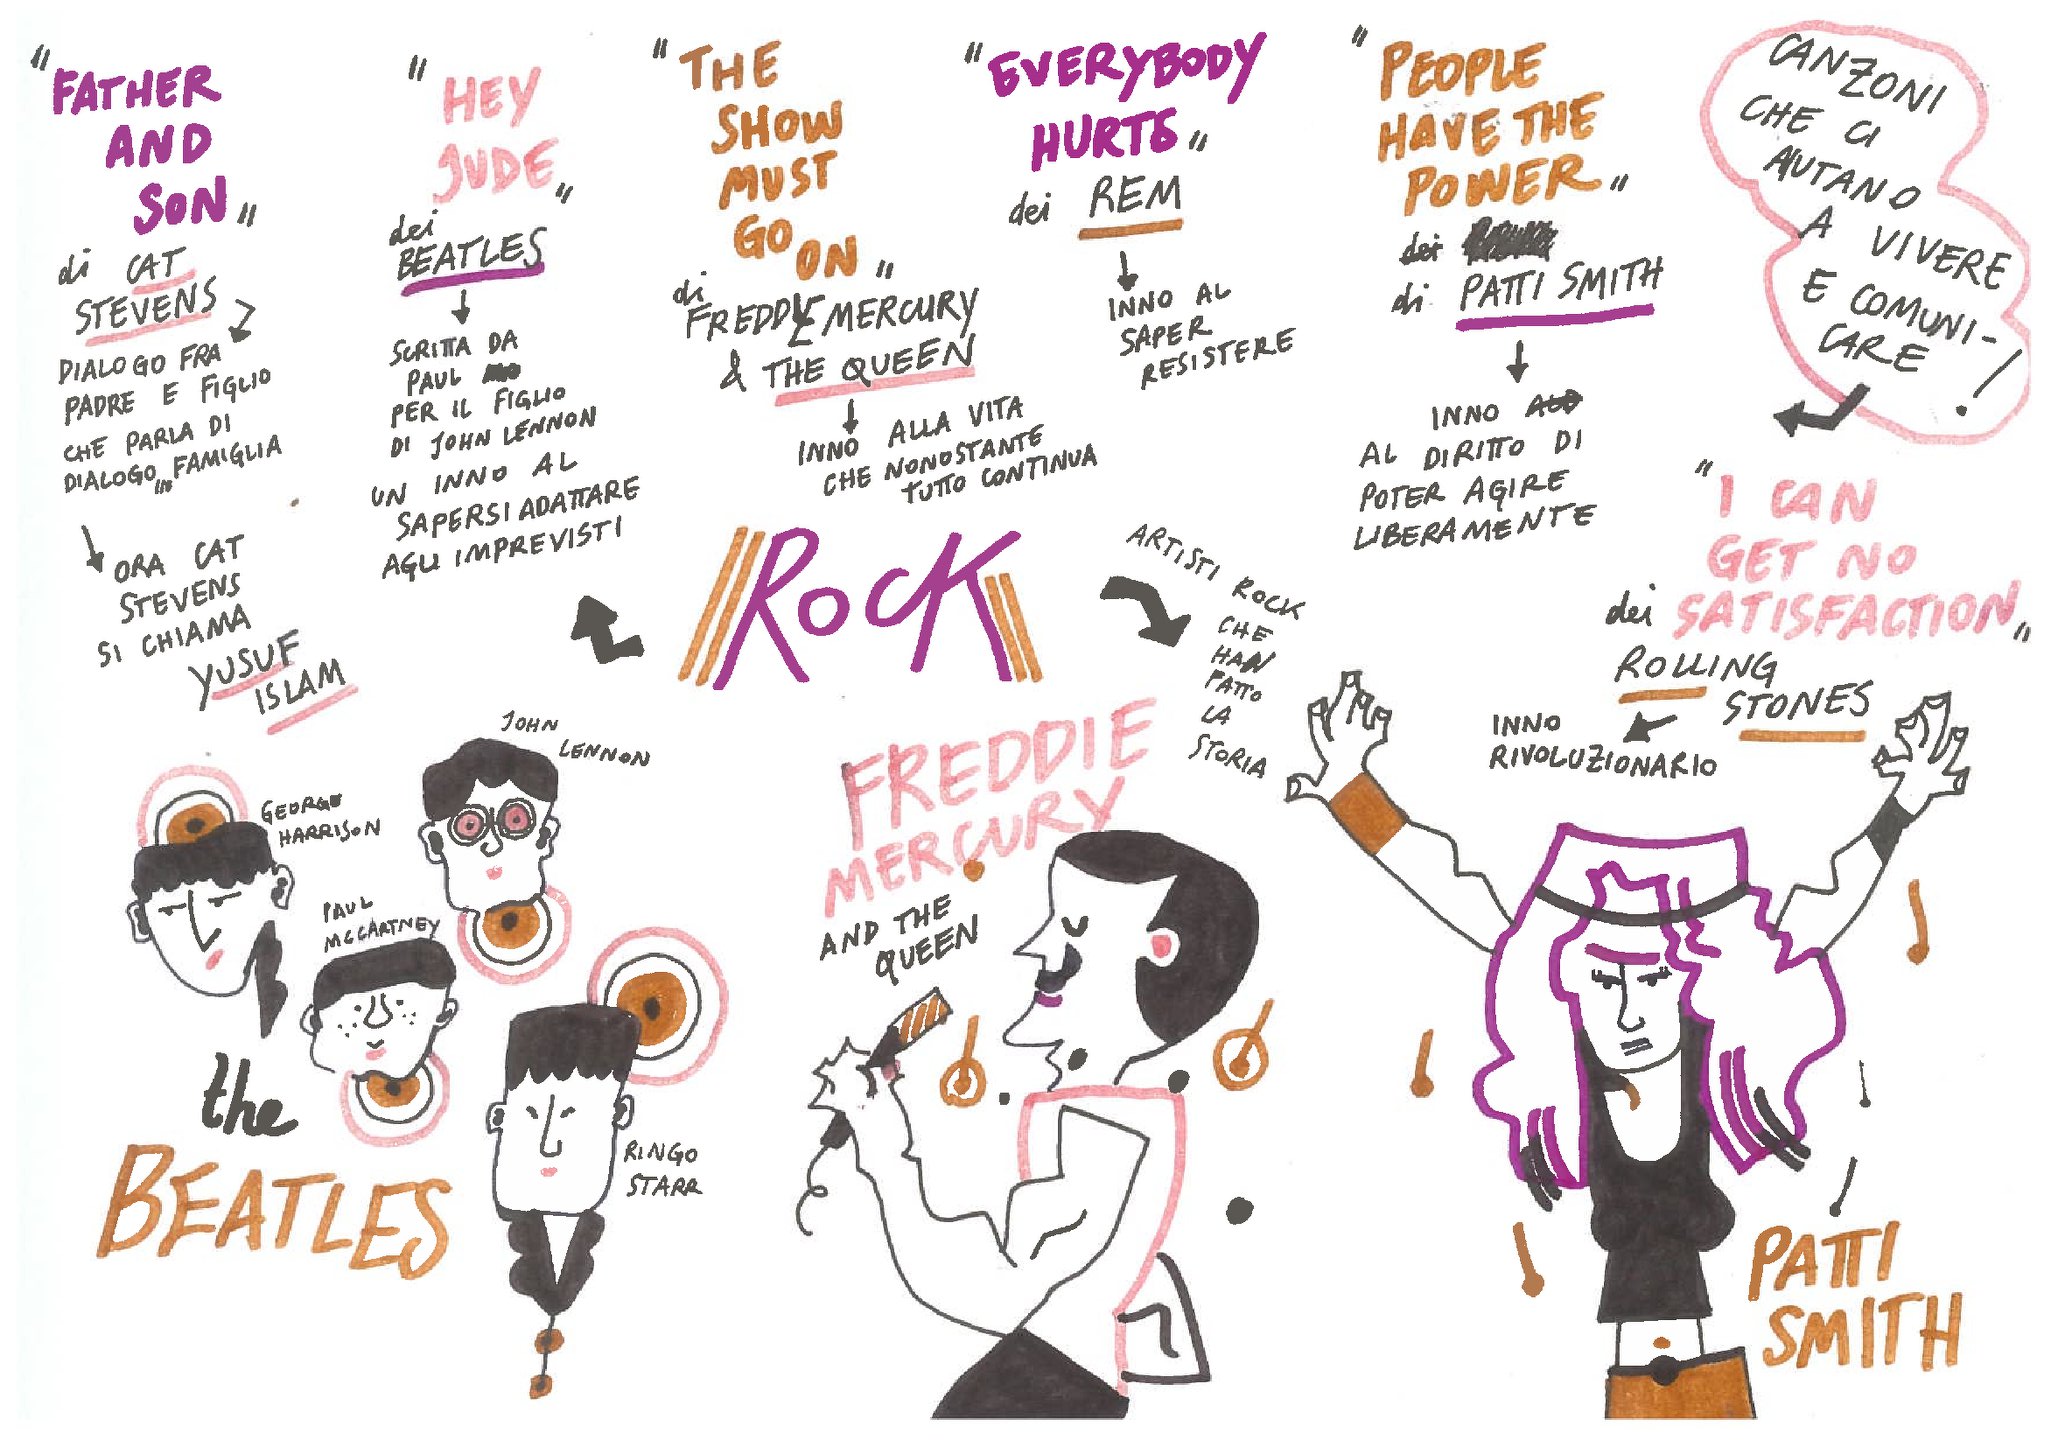 "FATHER
AND
SON"
di CAT
STEVENS
DIALOGO FRA
PADRE E FIGLIO
CHE PARLA DI
DIALOGO IN FAMIGLIA
ORA CAT
STEVENS
SI CHIAMA
YUSUF
ISLAM
"HEY
JUDE"
dei
BEATLES
SCRITTA DA
PAUL
PER IL FIGLIO
DI JOHN LENNON
UN INNO AL
SAPERSI ADATTARE
AGLI IMPREVISTI
"THE
SHOW
MUST
GO ON"
di
FREDDIE MERCURY
& THE QUEEN
INNO ALLA VITA
CHE NONOSTANTE
TUTTO CONTINUA
"EVERYBODY
HURTS"
dei REM
INNO AL
SAPER
RESISTERE
"PEOPLE
HAVE THE
POWER"
dei
di PATTI SMITH
INNO
AL DIRITTO DI
POTER AGIRE
LIBERAMENTE
CANZONI
CHE CI
AIUTANO
A VIVERE
E COMUNI-
CARE!
"I CAN
GET NO
SATISFACTION"
dei
ROLLING
STONES
INNO
RIVOLUZIONARIO
ROCK
ARTISTI ROCK
CHE
HAN
FATTO
LA
STORIA
GEORGE
HARRISON
JOHN
LENNON
PAUL
MCCARTNEY
RINGO
STARR
the
BEATLES
FREDDIE
MERCURY
AND THE
QUEEN
PATTI
SMITH